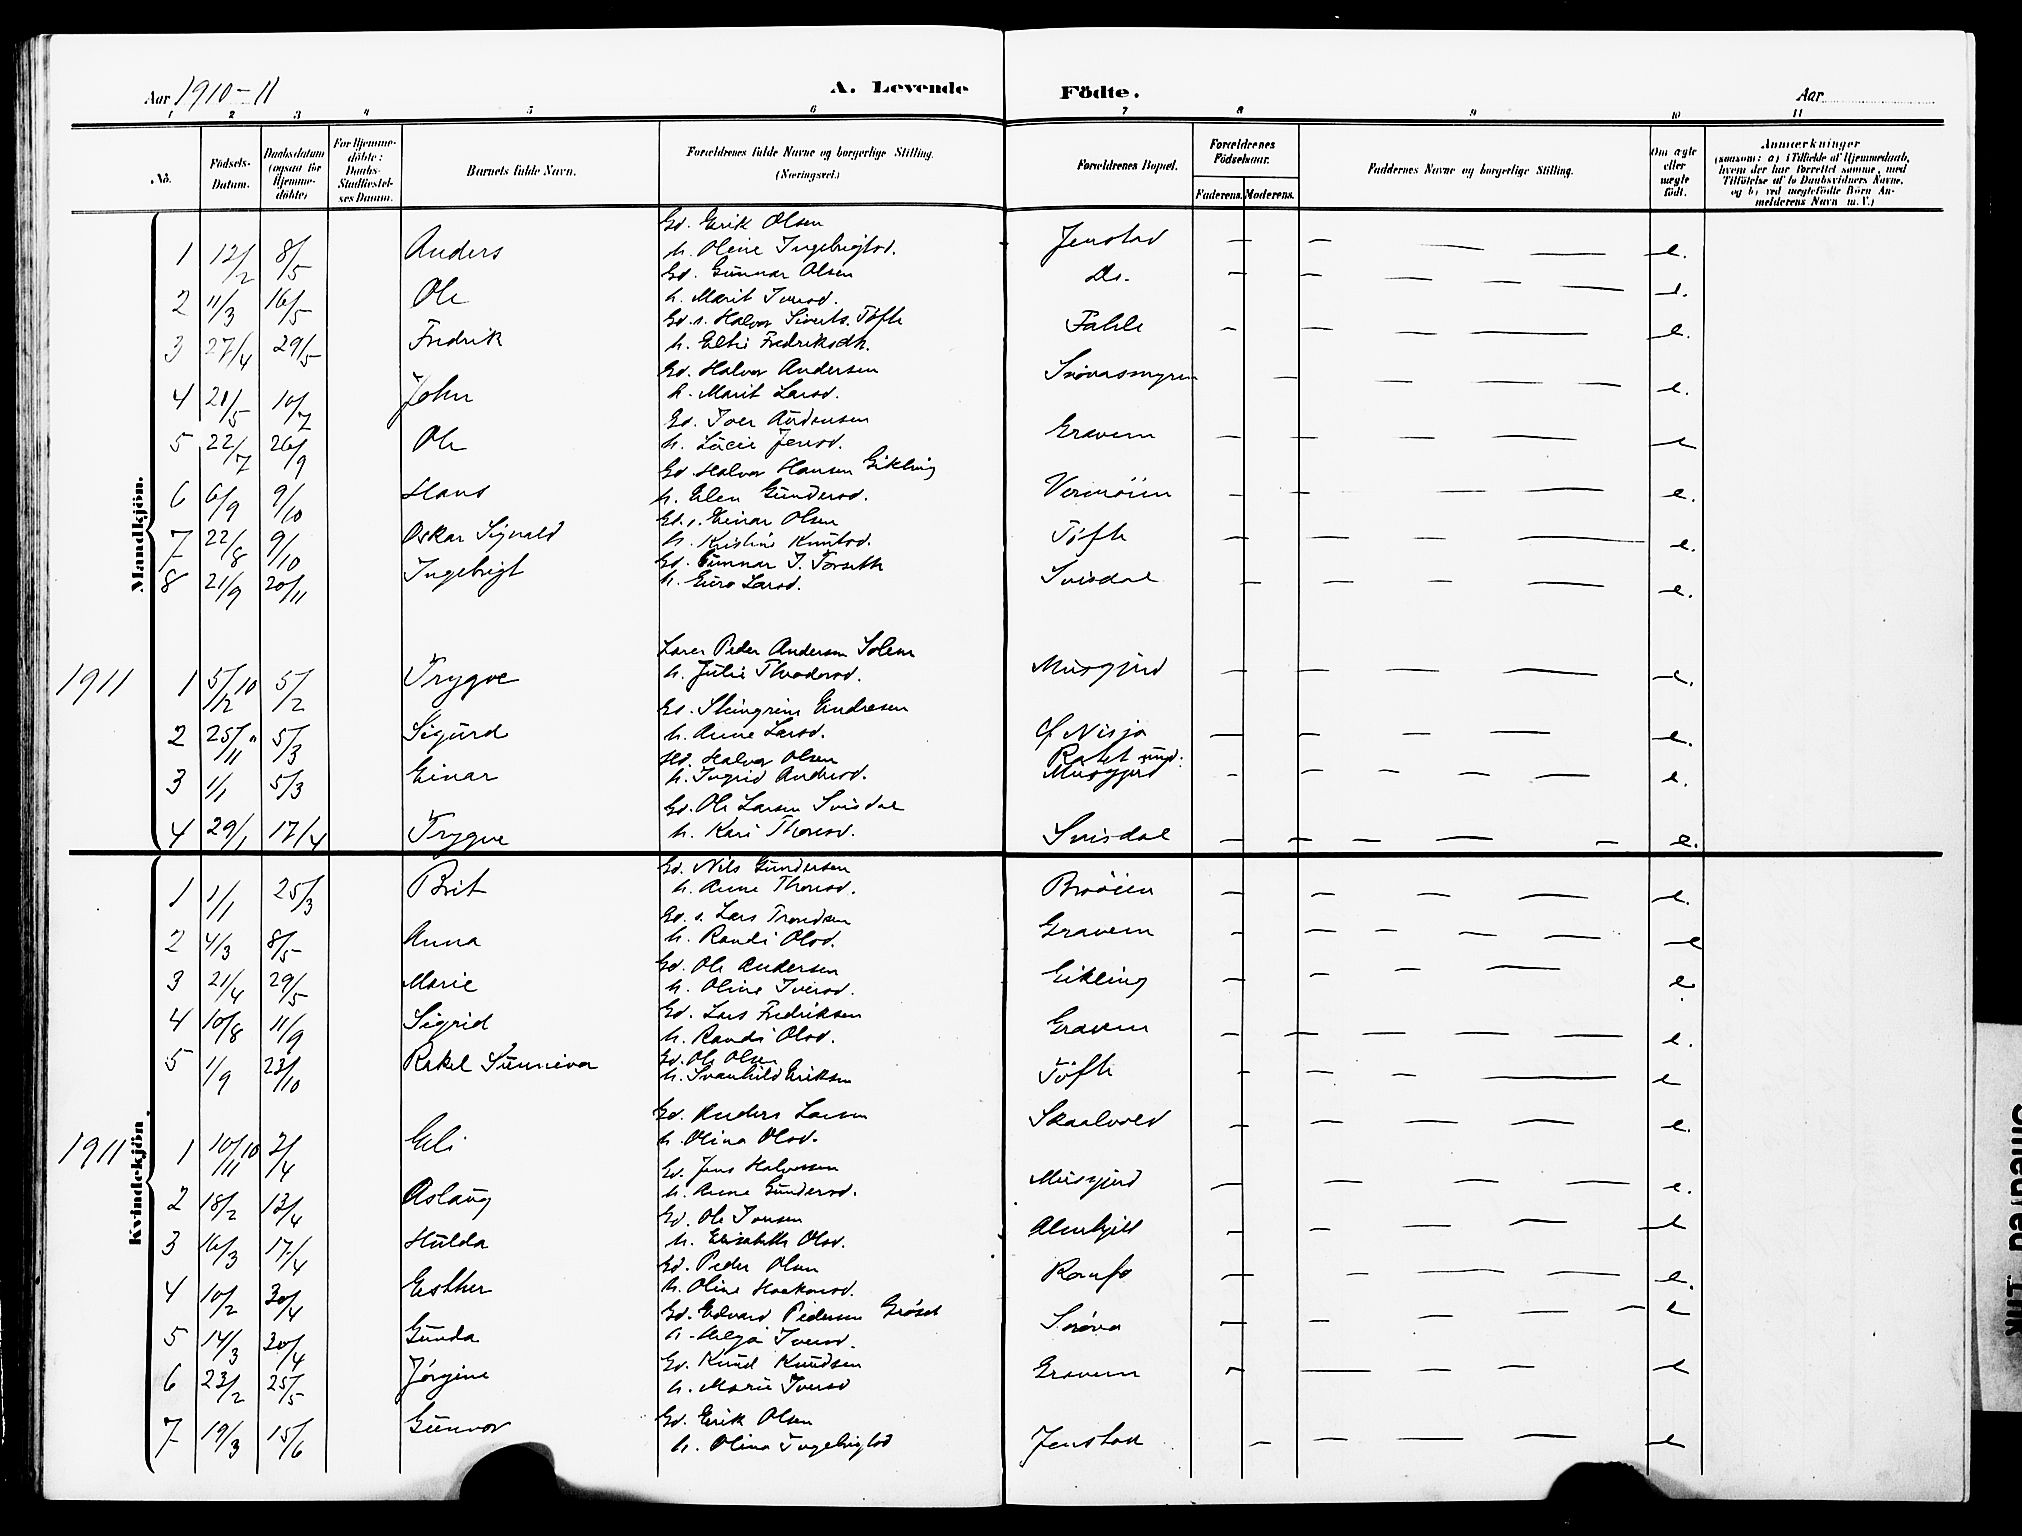 Aar 1910-11 A. Levende Födte. Aar
1 2 3 4 5 6 7 8 9 10 11
No. Födsels-Datum. Daabsdatum (ogsaa for Hjemmedöbte) For Hjemmedöbte: Daabs-Stadfæstelses Datum. Barnets fulde Navn. Forældrenes fulde Navne og borgerlige Stilling. (Næringsvei.) Forældrenes Bopæl. Forældrenes Födselsaar. Faderens. Moderens. Faddernes Navne og borgerlige Stilling. Om ægte eller uægte födt. Anmærkninger (saasom: a) i Tilfælde af Hjemmedaab, hvem der har forrettet samme, med Tilföielse af to Daabsvidners Navne, og b) ved uægtefödte Börn Anmelderens Navn m. V.)
Mandkjön.
Gd. Erik Olsen
1 12/2 8/5 Anders h. Oline Ingebrigtsd. Jenstad — — — — e.
Gd. Gunnar Olsen
2 11/3 16/5 Ole h. Marit Iversd. Do. — — — — — e.
Gd. s. Halvor Siverts. Tøfte
3 27/4 29/5 Fredrik h. Eli Fredriksdtr. Fahle — — — — — e.
Gd. Halvor Andersen
4 21/5 10/7 John h. Marit Larsd. Snøvasmyren — — — — — e.
Gd. Iver
5 22/7 26/9 Ole h. Lucie Jensd. Gravem — — — — — e
Gd. Halvor Hansen Eikling
6 6/9 9/10 Hans h. Elen Gundersd. Vermøien — — — — e.
Gd. s. Einar Olsen
7 22/8 9/10 Oskar Signald h. Kristine Knutsd. Tøfte — — — — — e.
Gd. Gunnar I. Forseth
8 21/9 20/11 Ingebrigt h. Guro Larsd. Svisdal — — — — e.
1911
Lærer Peder Andersen Solem
1 5/12 10 5/2 Trygve h. Julie Theodorsd. Musgjerd — — — — e.
Gd. Steingrim Endresen
2 25/11 " 5/3 Sigurd h. Anne Larsd. Nisja — — — — — e.
Hd. Halvor Olsen
3 1/1 5/3 Einar h. Ingrid Andersd. Musgjerd — — — — — e.
Gd. Ole Larsen Svisdal
4 29/1 17/4 Trygve h. Kari Thoresd. Svisdal — — — — — e.
Kvindekjön.
Gd. Nils Gundersen
1 1/1 25/3 Brit h. Anne Thoresd. Brøøien — — — — — e.
Gd. s. Lars Trondsen
2 4/3 8/5 Anna h. Randi Olsd. Gravem — — — — — e
Gd. Ole Andersen
3 21/4 29/5 Marie h. Oline Iversd. Eikling — — — — e
Gd. Lars Fredriksen
4 10/8 11/9 Sigrid h. Randi Olsd. Gravem — — — — — e.
Gd. Ole Olsen
5 1/9 23/10 Rakel Sunneva h. Svanhild Eriksen Tøfte — — — — e
1911
Gd. Anders Larsen
1 10/11 10 2/4 Eli h. Olina Olsd. Skaalvold — — — — — e.
Gd. Jens Halvorsen
2 18/2 13/4 Aslaug h. Anne Gundersd. Musgjerd — — — — — e.
Gd. Ole Iversen
3 16/3 17/4 Hulda h. Elisabeth Olsd. — — — — — e
Gd. Peder Olsen
4 10/2 30/4 Esther h. Oline Haakonsd. Romfo — — — — e.
Gd. Edvard Pedersen Grøset
5 14/3 30/4 Gunda h. Helga Iversd. Snøva — — — — — e
Gd. Knud Knudsen
6 23/2 25/5 Jørgine h. Marie Iversd Gravem — — — — — e
Gd. Erik Olsen
7 19/3 15/6 Gunvor h. Olina Ingebrigtsd Jenstad — — — — — e